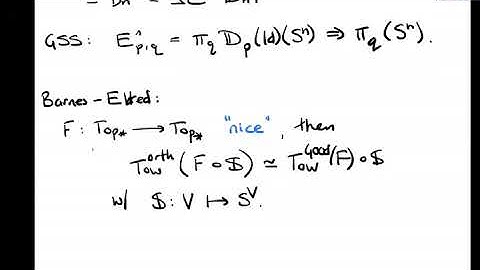 GSS: E¹p,q = πq 𝔻p(Id)(Sⁿ) ⇒ πq(Sⁿ).
Barnes – Eldred:
F: Top* → Top* "nice", then
Tow^orth (F ∘ 𝕊) ≃ Tow^Good(F) ∘ 𝕊
w/ 𝕊: V ↦ S^V.